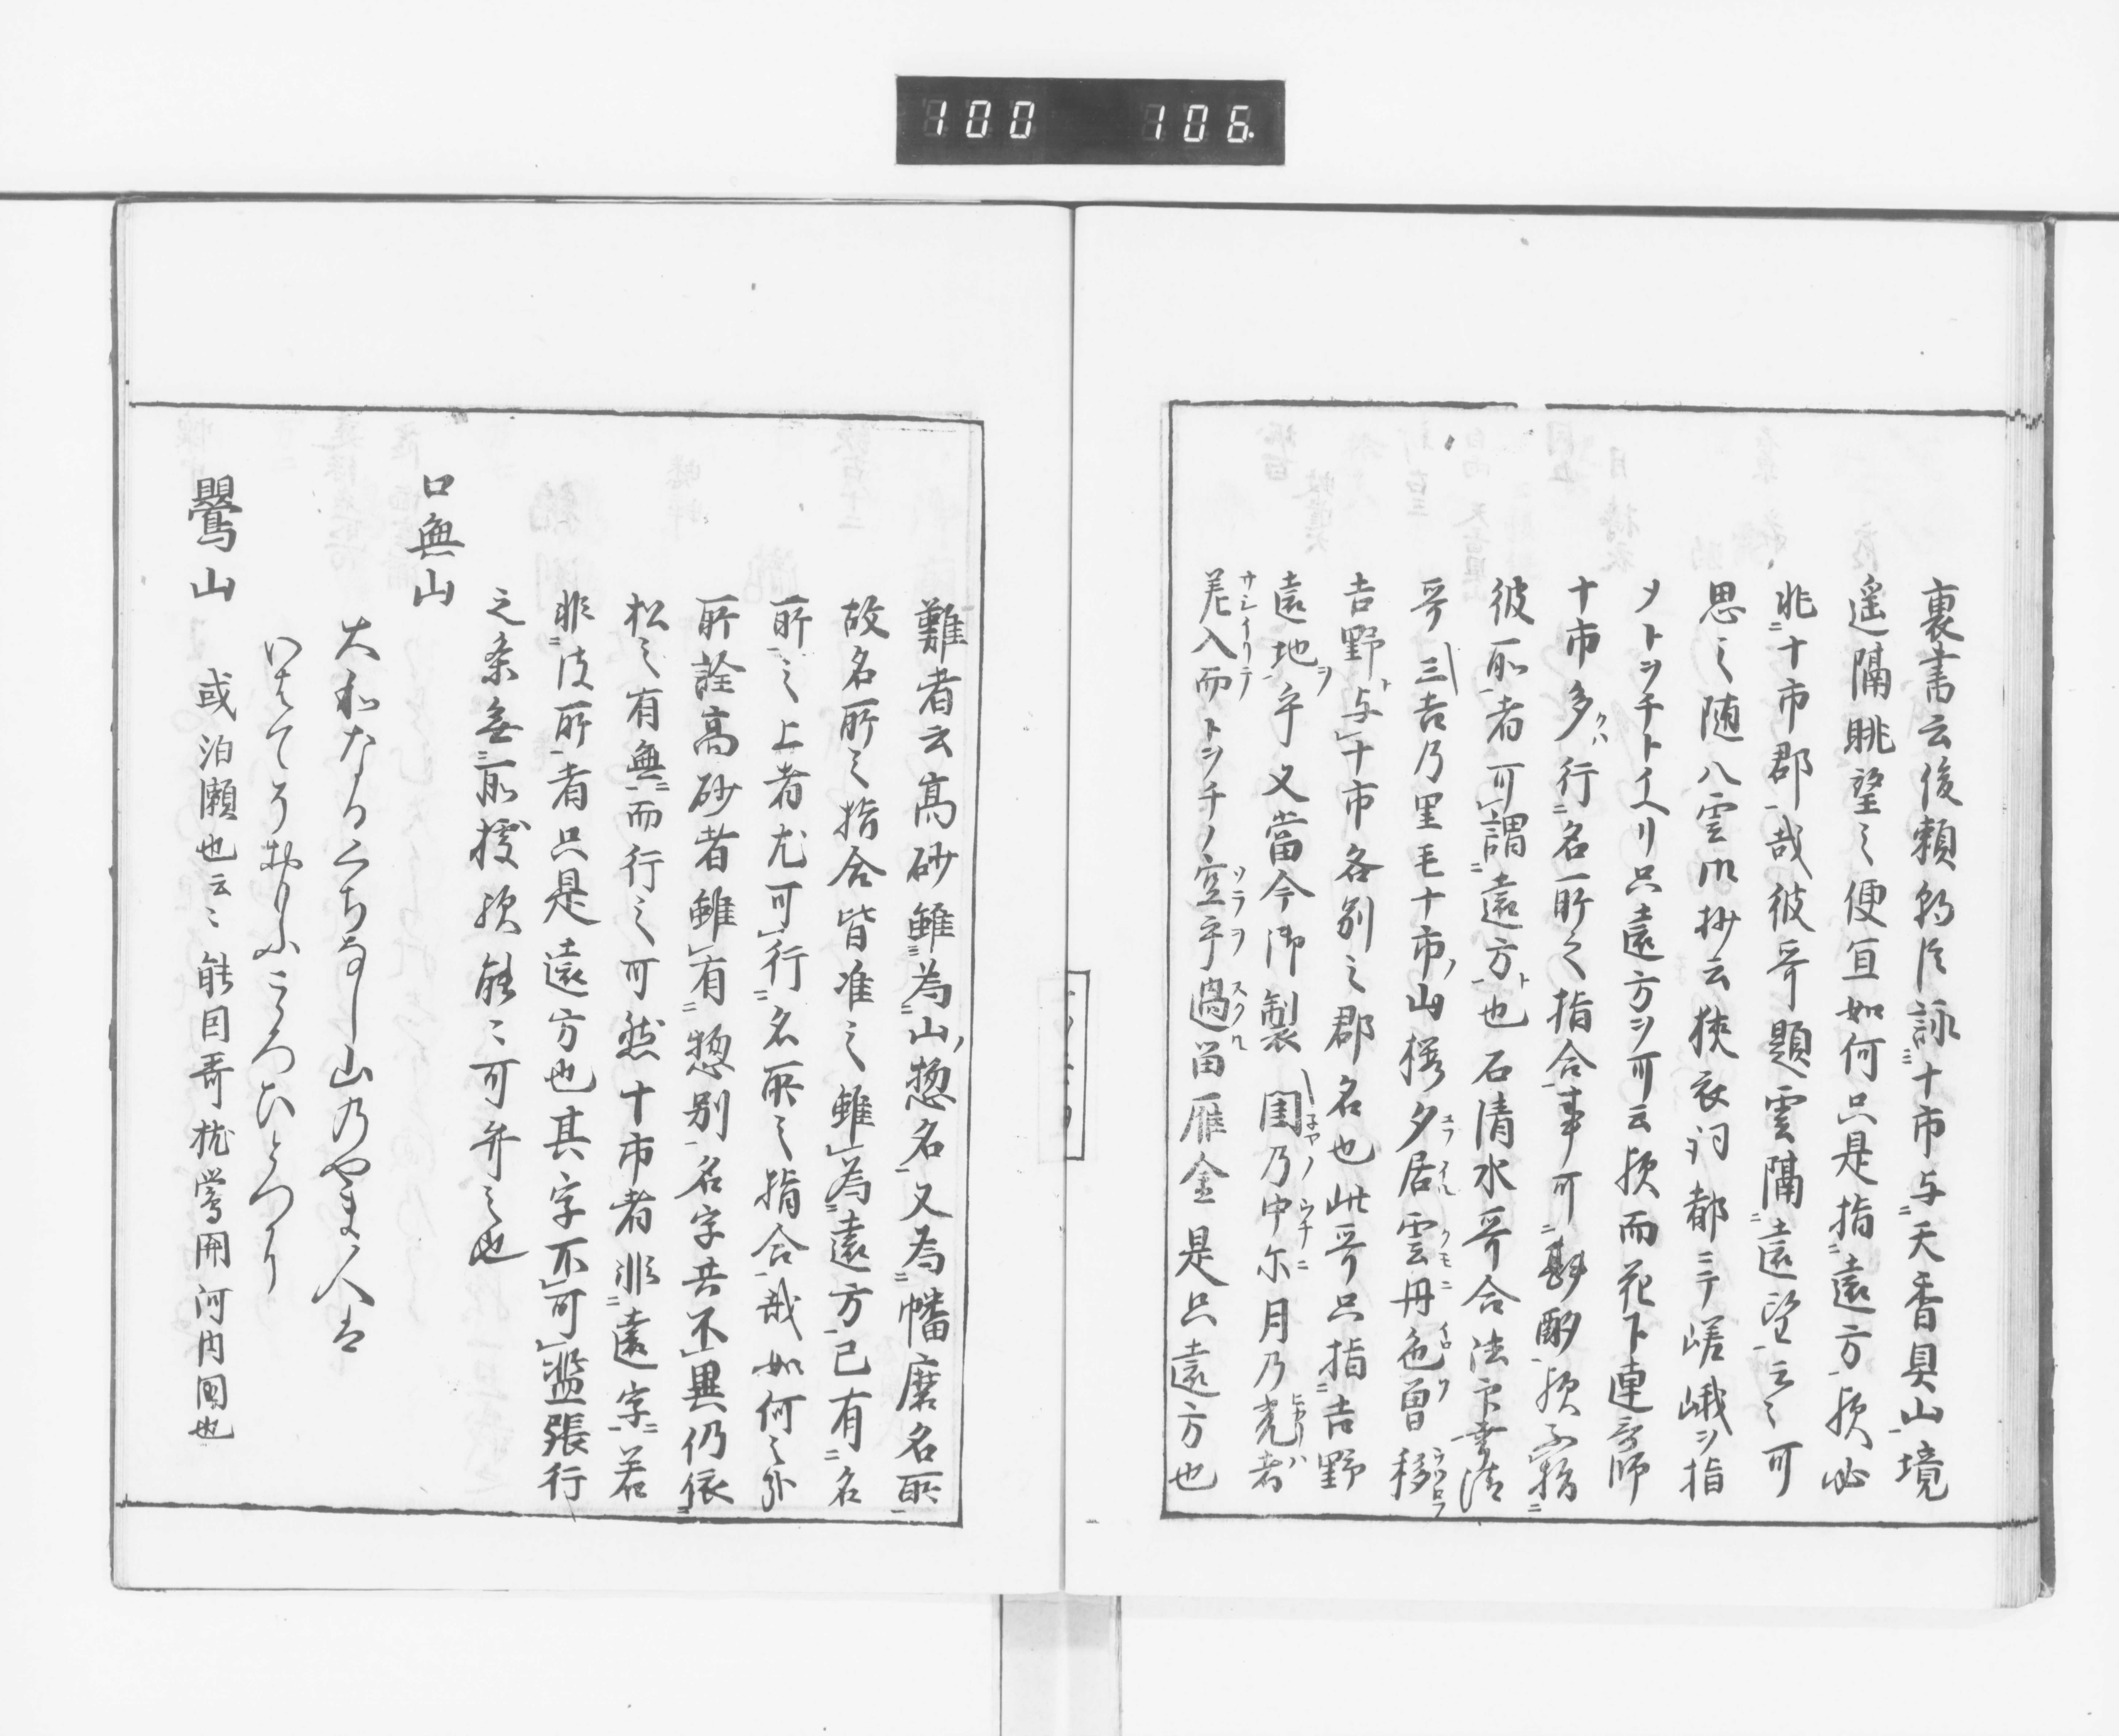 100 106
裏書云俊頼朝臣詠ニ十市与ニ天香具山一境
遥隔眺望之便宜如何只是指ニ遠方一歟必
非ニ十市郡一哉彼哥題雲隔ニ遠望一云々可
思之随八雲御抄云狭衣詞都ニテ嵯峨ヲ指
メトヲチトイヘリ只遠方ヲ可云歟而花下連哥師
十市多クハ行ニ名所之指合一事可ニ斟酌一歟不指ニ
彼所一者可謂ニ遠方ト一也石清水哥合法印幸清
哥三吉乃里毛十市ノ山桜夕居雲丹色曽移
吉野与ト十市各別之郡名也此哥只指ニ吉野
遠地ヲ一乎又當今御製閨乃中尓月乃光者
差入而トヲチノ空乎過留雁金是只遠方也
難者云高砂雖ニ為ニ山ノ惣名一又為ニ幡磨名所一
故名所之指合皆准之雖為ニ遠方一已有ニ名
所一之上者尤可行ニ名所之指合一哉如何之外
所詮高砂者雖有ニ惣別一名字共不異仍依ニ
松之有無ニ而行之可然十市者非ニ遠字ニ一若
非ニ彼所一者只是遠方也其字不可濫張行
之条無ニ所拠歟能々可弁之也
口無山
大和なるくちなし山のやま人は
いはてそおもふこゝろひとつに
鸎山 或泊瀬也云々能因哥枕鴬関河内国也